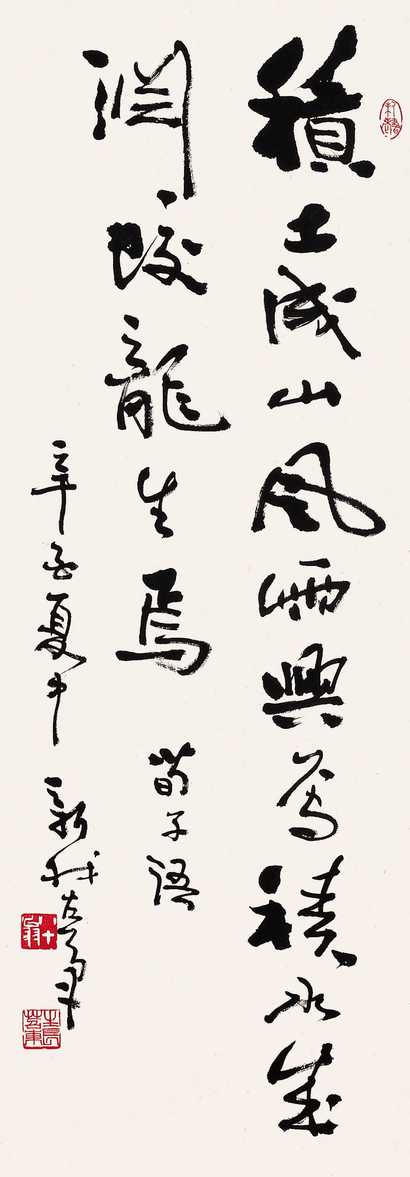 積土成山風雨興焉積水成
淵蛟龍生焉 荀子語
辛酉夏中 新村